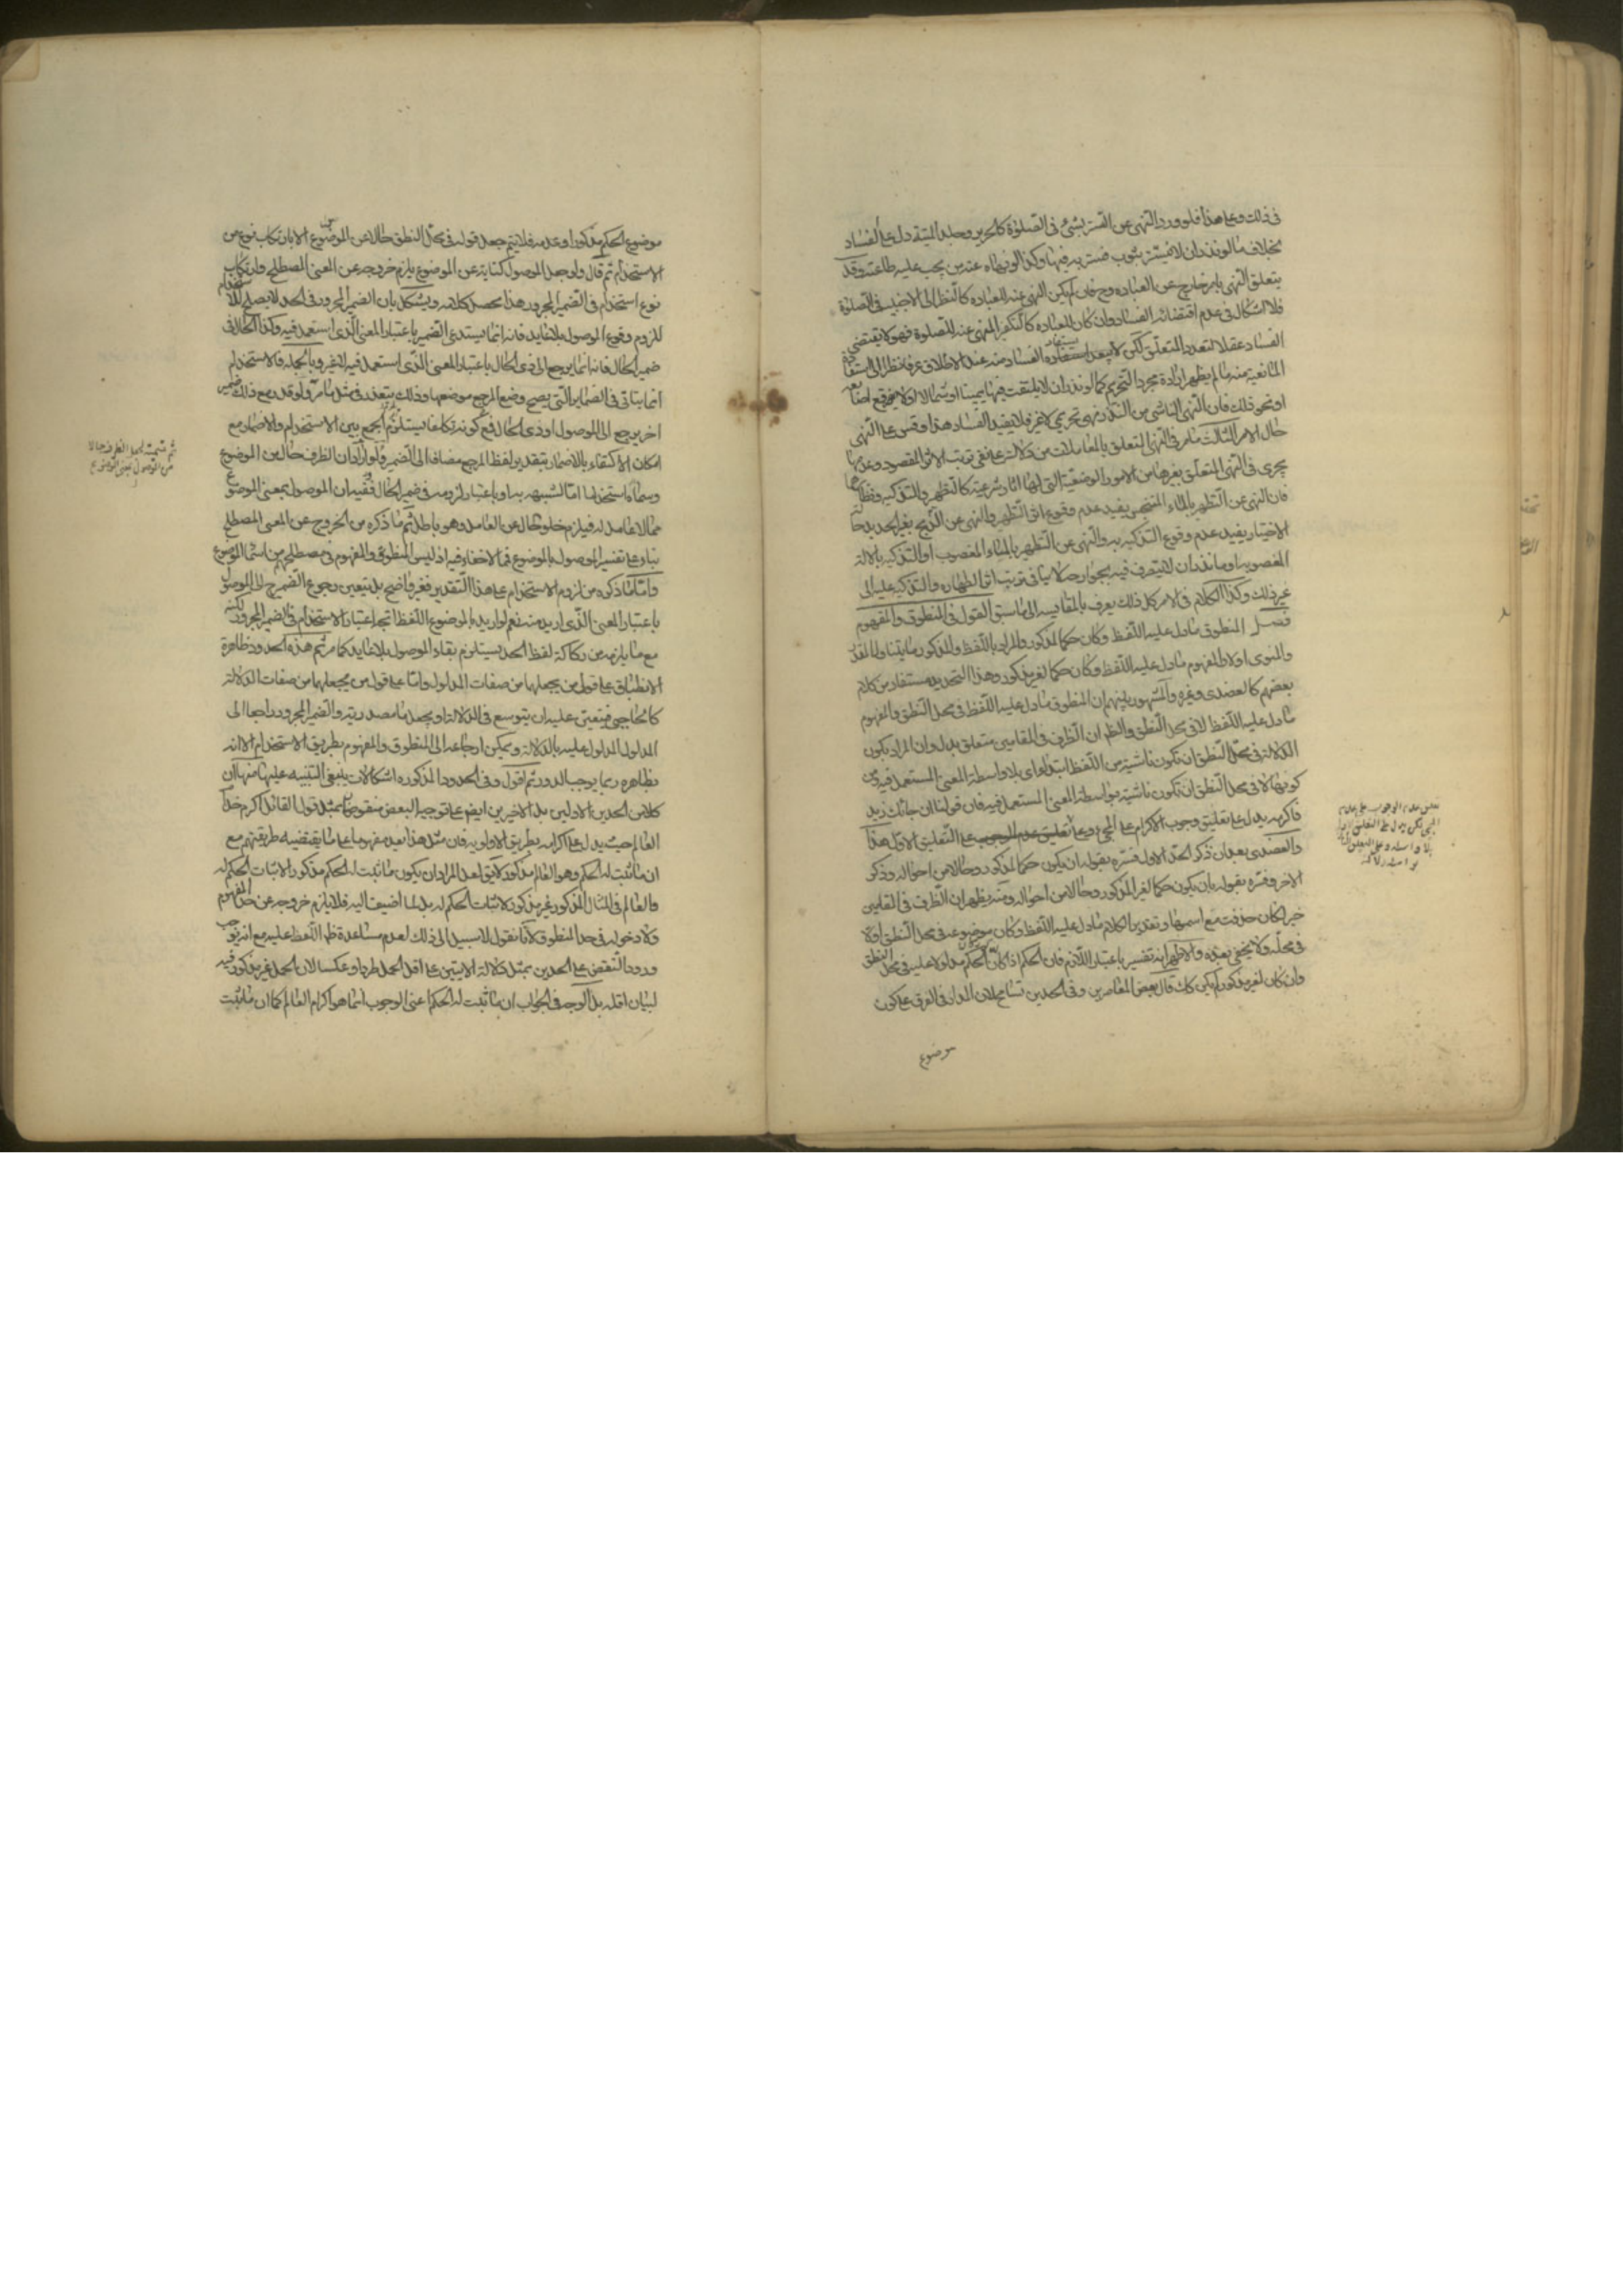 في ذلك وعلى هذا فلو ورد النهى عن التستر بشئ في الصلوة كالحرير وجلد الميتة دل على الفساد
بخلاف ما لو نذر ان لا يتستر بثوب فتستر به فيها وكذا لو نهاه عنه من يجب عليه طاعته وقد
يتعلق النهى بامر خارج عن العباده وح فان لم يكن النهى عنه للعباده كالنظر الى الاجنبية في الصلوة
فلا اشكال في عدم اقتضائه الفساد وان كان للعباده كالتكفير المنهى عنه للصلوة فهو لا يقتضي
الفساد عقلا لتعدد المتعلق لكن لا يبعد استفادة الفساد منه عند الاطلاق عرفا نظرا الى استفادة
المانعية منه ما لم يظهر ارادة مجرد التحريم كما لو نذر ان لا يلتفت فيها يمينا او شمالا او لا يفرقع اصابعه
او نحو ذلك فان النهى الناشى من النذر نهى تحريمي لا غير فلا يفيد الفساد هذا وقس على النهى
حال الامر الثالث ما مر في النهى المتعلق بالمعاملات من دلالته على نفي ترتب الاثر المقصود وعدمها
يجري في النهى المتعلق بغيرها من الامور الوضعية التي لها اثار شرعية كالتطهير والتذكيه ونظائرها
فان النهى عن التطهير بالماء المتنجس يفيد عدم وقوع اثر التطهير والنهى عن الذبح بغير الحديد حال
الاختيار يفيد عدم وقوع التذكيه به والنهى عن التطهير بالماء المغصوب او التذكيه بالالة
المغصوبه او ما نذر ان لا يتصرف فيه بجواره لا ينافى ترتب اثر الطهاره والتذكيه عليه الى
غير ذلك وكذا الكلام في الامر كل ذلك يعرف بالمقايسه الى ما سبق القول في المنطوق والمفهوم
فصل المنطوق ما دل عليه اللفظ وكان حكما لمذكور والمراد باللفظ والمذكور ما يتناول المقدر
والمنوى اولا والمفهوم ما دل عليه اللفظ وكان حكما لغير مذكور وهذا التحديد مستفاد من كلام
بعضهم كالعضدى وغيره والمشهور بينهم ان المنطوق ما دل عليه اللفظ في محل النطق والمفهوم
ما دل عليه اللفظ لا في محل النطق والظ ان الظرف في المقامين متعلق بدل وان المراد بكون
الدلالة في محل النطق ان تكون ناشية من اللفظ ابتداء اى بلا واسطة المعنى المستعمل فيه ومن
كونها لا في محل النطق ان تكون ناشية بواسطة المعنى المستعمل فيه فان قولنا ان جائك زيد
فاكرمه يدل على تعليق وجوب الاكرام على المجئ وعلى تعليق عدم الوجوب على التعليق الاول هذا
والعضدى بعد ان ذكر الحد الاول فسره بقوله ان يكون حكما لمذكور وحالا من احواله وذكر
الاخر وفسره بقوله بان يكون حكما لغير المذكور وحالا من احواله ومنه يظهر ان الظرف في المقامين
خبر لكان حذفت مع اسمها وتقدير الكلام ما دل عليه اللفظ وكان موضوعه في محل النطق اولا
في محله ولا يخفى بعده والاظهر انه تفسير باعتبار اللازم فان الحكم اذا كان الحكم مدلولا عليه في محل النطق
وان كان لغير مذكور لم يكن كك قال بعض المعاصرين وفي الحدين تسامح لان المدار في الفرق على كون
موضوع
تعليق عدم الوجوب على عدم
المجى لكن يدل على التعليق الاول
بلا واسطه وعلى التعليق الثاني
بواسطه دلالته
موضوع الحكم مذكورا وعدمه فلا يتم جعل قوله في محل النطق حالا عن الموضوع الا بارتكاب نوع من
الاستخدام ثم قال ولو جعل الموصول كناية عن الموضوع يلزم خروجه عن المعنى المصطلح وارتكاب
نوع استخدام في الضمير المجرور هذا محصل كلامه ويشكل بان الضمير المجرور في الحد لا يصلح للاستخدام
للزوم وقوع الموصول بلا عايد فانه انما يستدعى الضمير باعتبار المعنى الذى استعمل فيه وكذا الحال في
ضمير الحال فانه انما يرجع الى ذى الحال باعتبار المعنى الذى استعمل فيه لا غير وبالجمله فالاستخدام
انما يتاتى في الضماير التي يصح وضع المرجع موضعها وذلك يتعذر في مثل ما مر ولو قدر مع ذلك ضمير
اخر يرجع الى الموصول او ذى الحال فمع كونه تكلفا يستلزم الجمع بين الاستخدام والاضمار مع
امكان الاكتفاء بالاضمار بتقدير لفظ المرجع مضافا الى الضمير ولو اراد ان الظرف حال من الموضوع
وسماه استخداما اما لشبهه به او باعتبار لزومه في ضمير الحال ففيه ان الموصول بمعنى الموضوع
مما لا عامل له فيلزم خلو حال عن العامل وهو باطل ثم ما ذكره من الخروج عن المعنى المصطلح
بناء على تفسير الموصول بالموضوع فما لا خفاء فيه اذ ليس المنطوق والمفهوم في مصطلحهم من اسماء الموضوع
واما ما ذكره من لزوم الاستخدام على هذا التقدير فغير واضح بل يتعين رجوع الضمير ح الى الموصول
باعتبار المعنى الذى اريد منه نعم لو اريد بالموضوع اللفظ اتجه اعتبار الاستخدام في الضمير المجرور لكنه
مع ما يلزمه من ركاكة لفظ الحد يستلزم بقاء الموصول بلا عايد كما مر ثم هذه الحدود ظاهرة
الانطباق على قول من يجعلها من صفات المدلول واما على قول من يجعلها من صفات الدلالة
كالحاجبي فيتعين عليه ان يتوسع في الدلالة او يجعل ما مصدرية والضمير المجرور راجعا الى
المدلول المدلول عليه بالدلالة ويمكن ارجاعه الى المنطوق والمفهوم بطريق الاستخدام الا انه
بظاهره ربما يوجب الدور ثم اقول وفي الحدود المذكوره اشكالات ينبغى التنبيه عليها منها ان
كلا من الحدين الاولين بل الاخيرين ايض على توجيه البعض منقوض بمثل قول القائل اكرم خدام
العالم حيث يدل على اكرامه بطريق الاولويه فان مثل هذا يعد مفهوما على ما يقتضيه طريقتهم مع
ان ما ثبت له الحكم وهو العالم مذكور لا يق لعل المراد ان يكون ما ثبت له الحكم مذكورا لاثبات الحكم له
والعالم في المثال المذكور غير مذكور لاثبات الحكم له بل لما اضيف اليه فلا يلزم خروجه عن حد المفهوم
ولا دخوله في حد المنطوق لانا نقول لا سبيل الى ذلك لعدم مساعدة ظ اللفظ عليه مع انه يوجب
ورود النقض على الحدين بمثل دلالة الايتين على اقل الحمل طردا وعكسا لان الحمل غير مذكور فيه
لبيان اقله بل الوجه في الجواب ان ما ثبت له الحكم اعنى الوجوب انما هو اكرام العالم كما ان ما ثبت